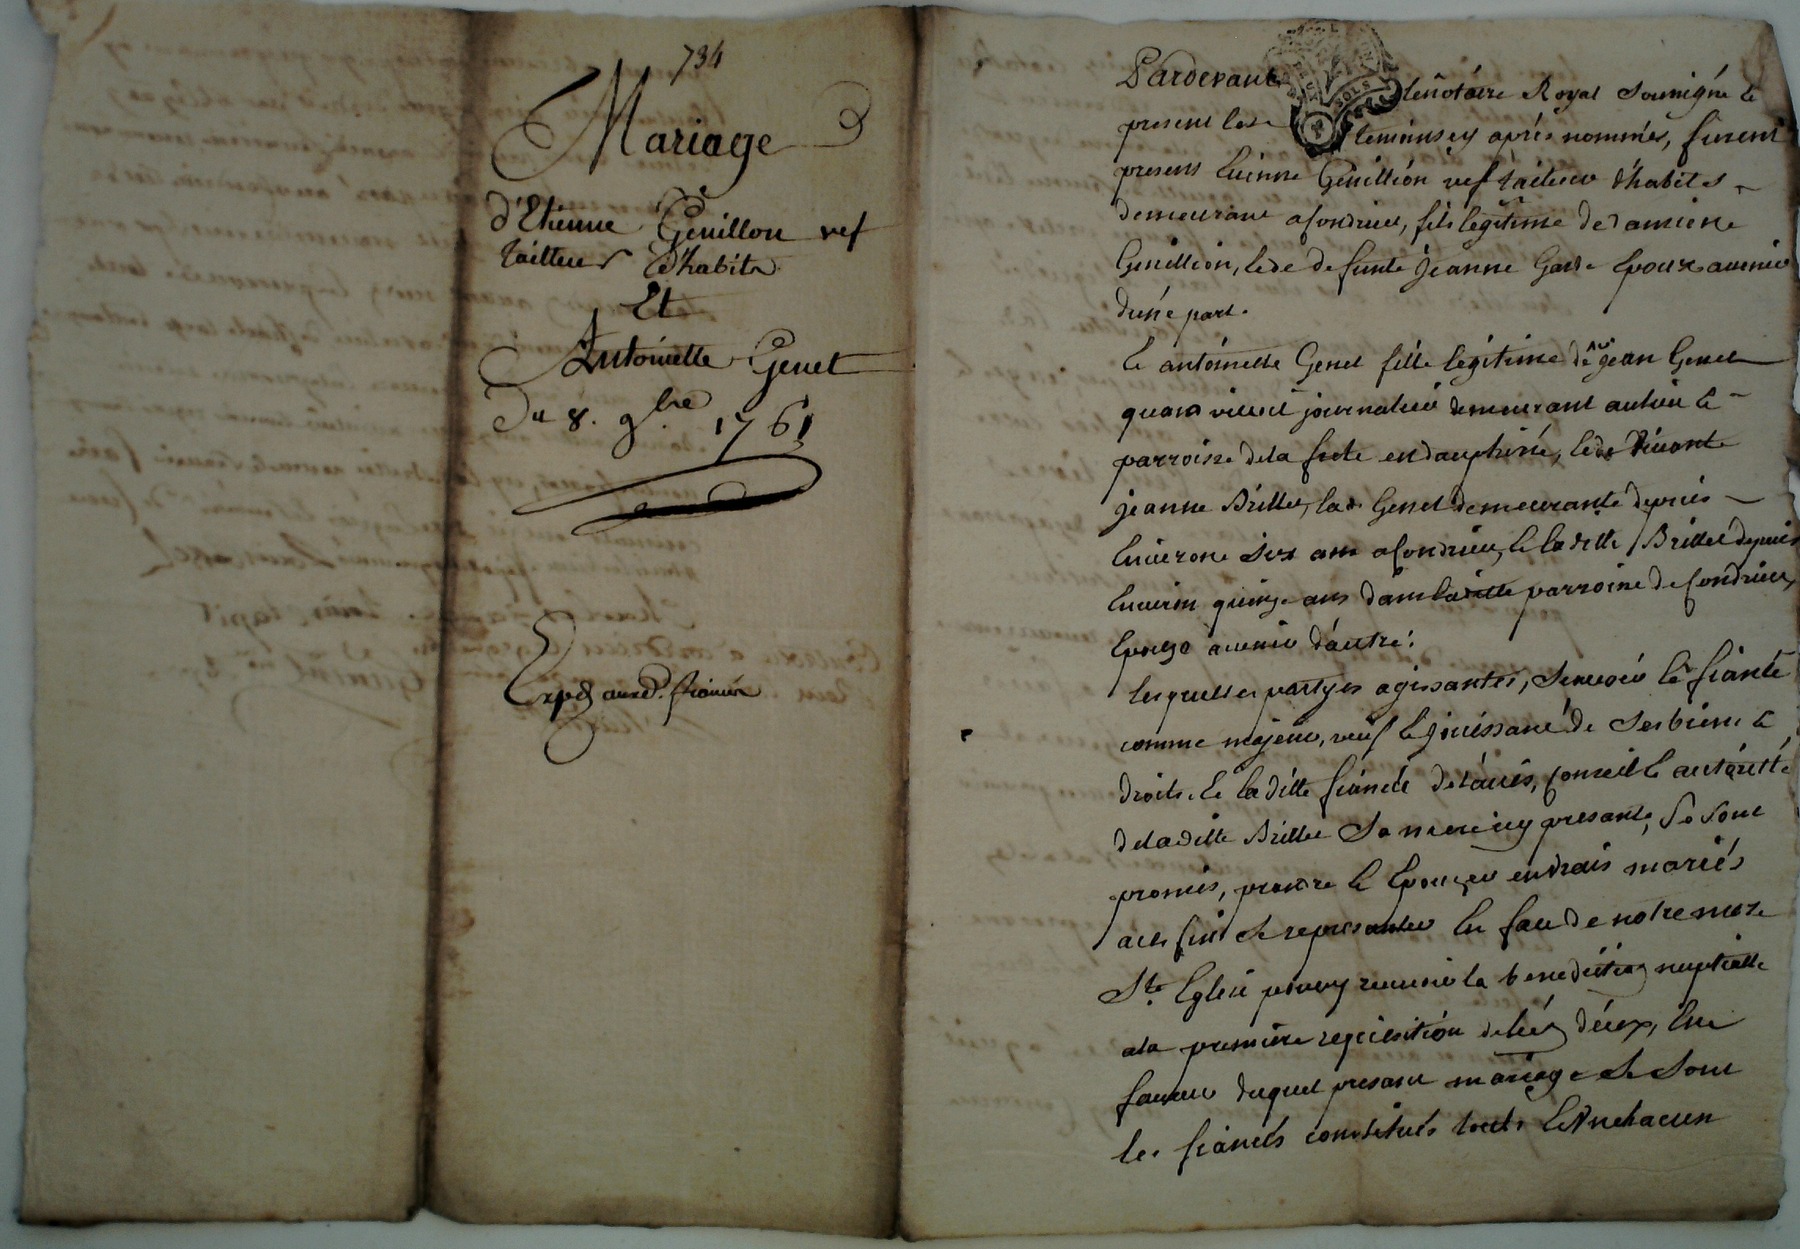 734
Mariage
d'Etienne Genillon vef
tailleur d'habits
Et
Antoinette Genet
Du 8. 9bre 1761
Expd aux d. fiancés
Pardevant le notaire Royal soussigné &
present les temoins cy aprés nommés, furent
presens Etienne Genillion vef tailieur d'habits
demeurant a Condrieu, fils legitime de damien
Genillion, & de defunte Jeanne Gard Epoux avenir
d'une part.
Et antoinette Genet fille legitime de Jean Genet
quand vivoit journalier demeurant au lieu &
parroisse de la frete en dauphiné, & de vivante
jeanne Brillet, lad. Genet demeurante depuis
Environ six ans a Condrieu, & laditte Brillet depuis
Environ quinze ans dans laditte parroisse de Condrieu,
Epouse avenir d'autre:
Lesquelles partyes agissantes, sçavoir le fiancé
comme majeur, veuf & jouissant de ses biens &
droits, & laditte fiancée de l'avis, conseil & autorité
de laditte Brillet sa mere icy presante, se sont
promis, prendre & Epouser en vrais mariés
a ces fins se representer En face de notre mere
Ste Eglise pour y recevoir la benediction nuptialle
a la premiere requisition de l'un d'eux, En
faveur duquel presant mariage se sont
les fiancés constitués touts & Un chacun